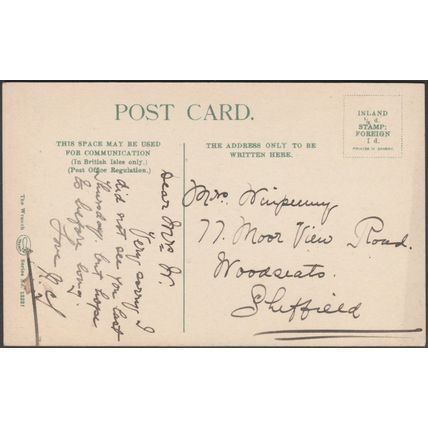 POST CARD.
THIS SPACE MAY BE USED
FOR COMMUNICATION
(In British Isles only.)
(Post Office Regulation.)
THE ADDRESS ONLY TO BE
WRITTEN HERE.
INLAND
½ d.
STAMP:
FOREIGN
1 d.
PRINTED IN SAXONY.
Dear Mrs W.
Very sorry I
did not see you last
Thursday. but hope
to before long.
Love
Mrs. Winpenny
77. Moor View Road.
Woodseats.
Sheffield
The Wrench
Series No.